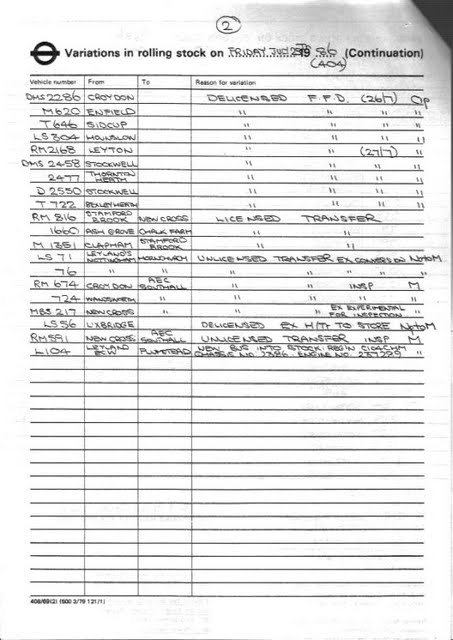 2
Variations in rolling stock on FRIDAY 25TH 86 (Continuation)
(404)
Vehicle number From To Reason for variation
DMS 2286 CROYDON DELICENSED F.F.D. (26/7) Op
M620 ENFIELD " " " "
T646 SIDCUP " " " "
LS304 HOUNSLOW " " " "
RM2168 LEYTON " " (27/7) "
DMS 2458 STOCKWELL " " " "
2477 THORNTON HEATH " " " "
D 2550 STOCKWELL " " " "
T 722 BEXLEYHEATH " " " "
RM 816 STAMFORD BROOK NEW CROSS LICENSED TRANSFER
1660 ASH GROVE CHALK FARM " "
M 1351 CLAPHAM STAMFORD BROOK " "
LS 71 LEYLAND'S NOTTINGHAM HORNCHURCH UNLICENSED TRANSFER EX CONVERSION NptoM
76 " " " " " " "
RM 674 CROYDON AEC SOUTHALL " " INSP M
724 WANDSWORTH " " " " "
MBS 217 NEW CROSS " " " EX EXPERIMENTAL FOR INSPECTION "
LS56 UXBRIDGE DELICENSED EX HIT TO STORE NptoM
RM591 NEW CROSS AEC SOUTHALL UNLICENSED TRANSFER INSP M
L104 LEYLAND ECW PLUMSTEAD NEW BUS INTO STOCK: REG'N C104CHM CHASSIS NO. 2386. ENGINE NO. 237229 "